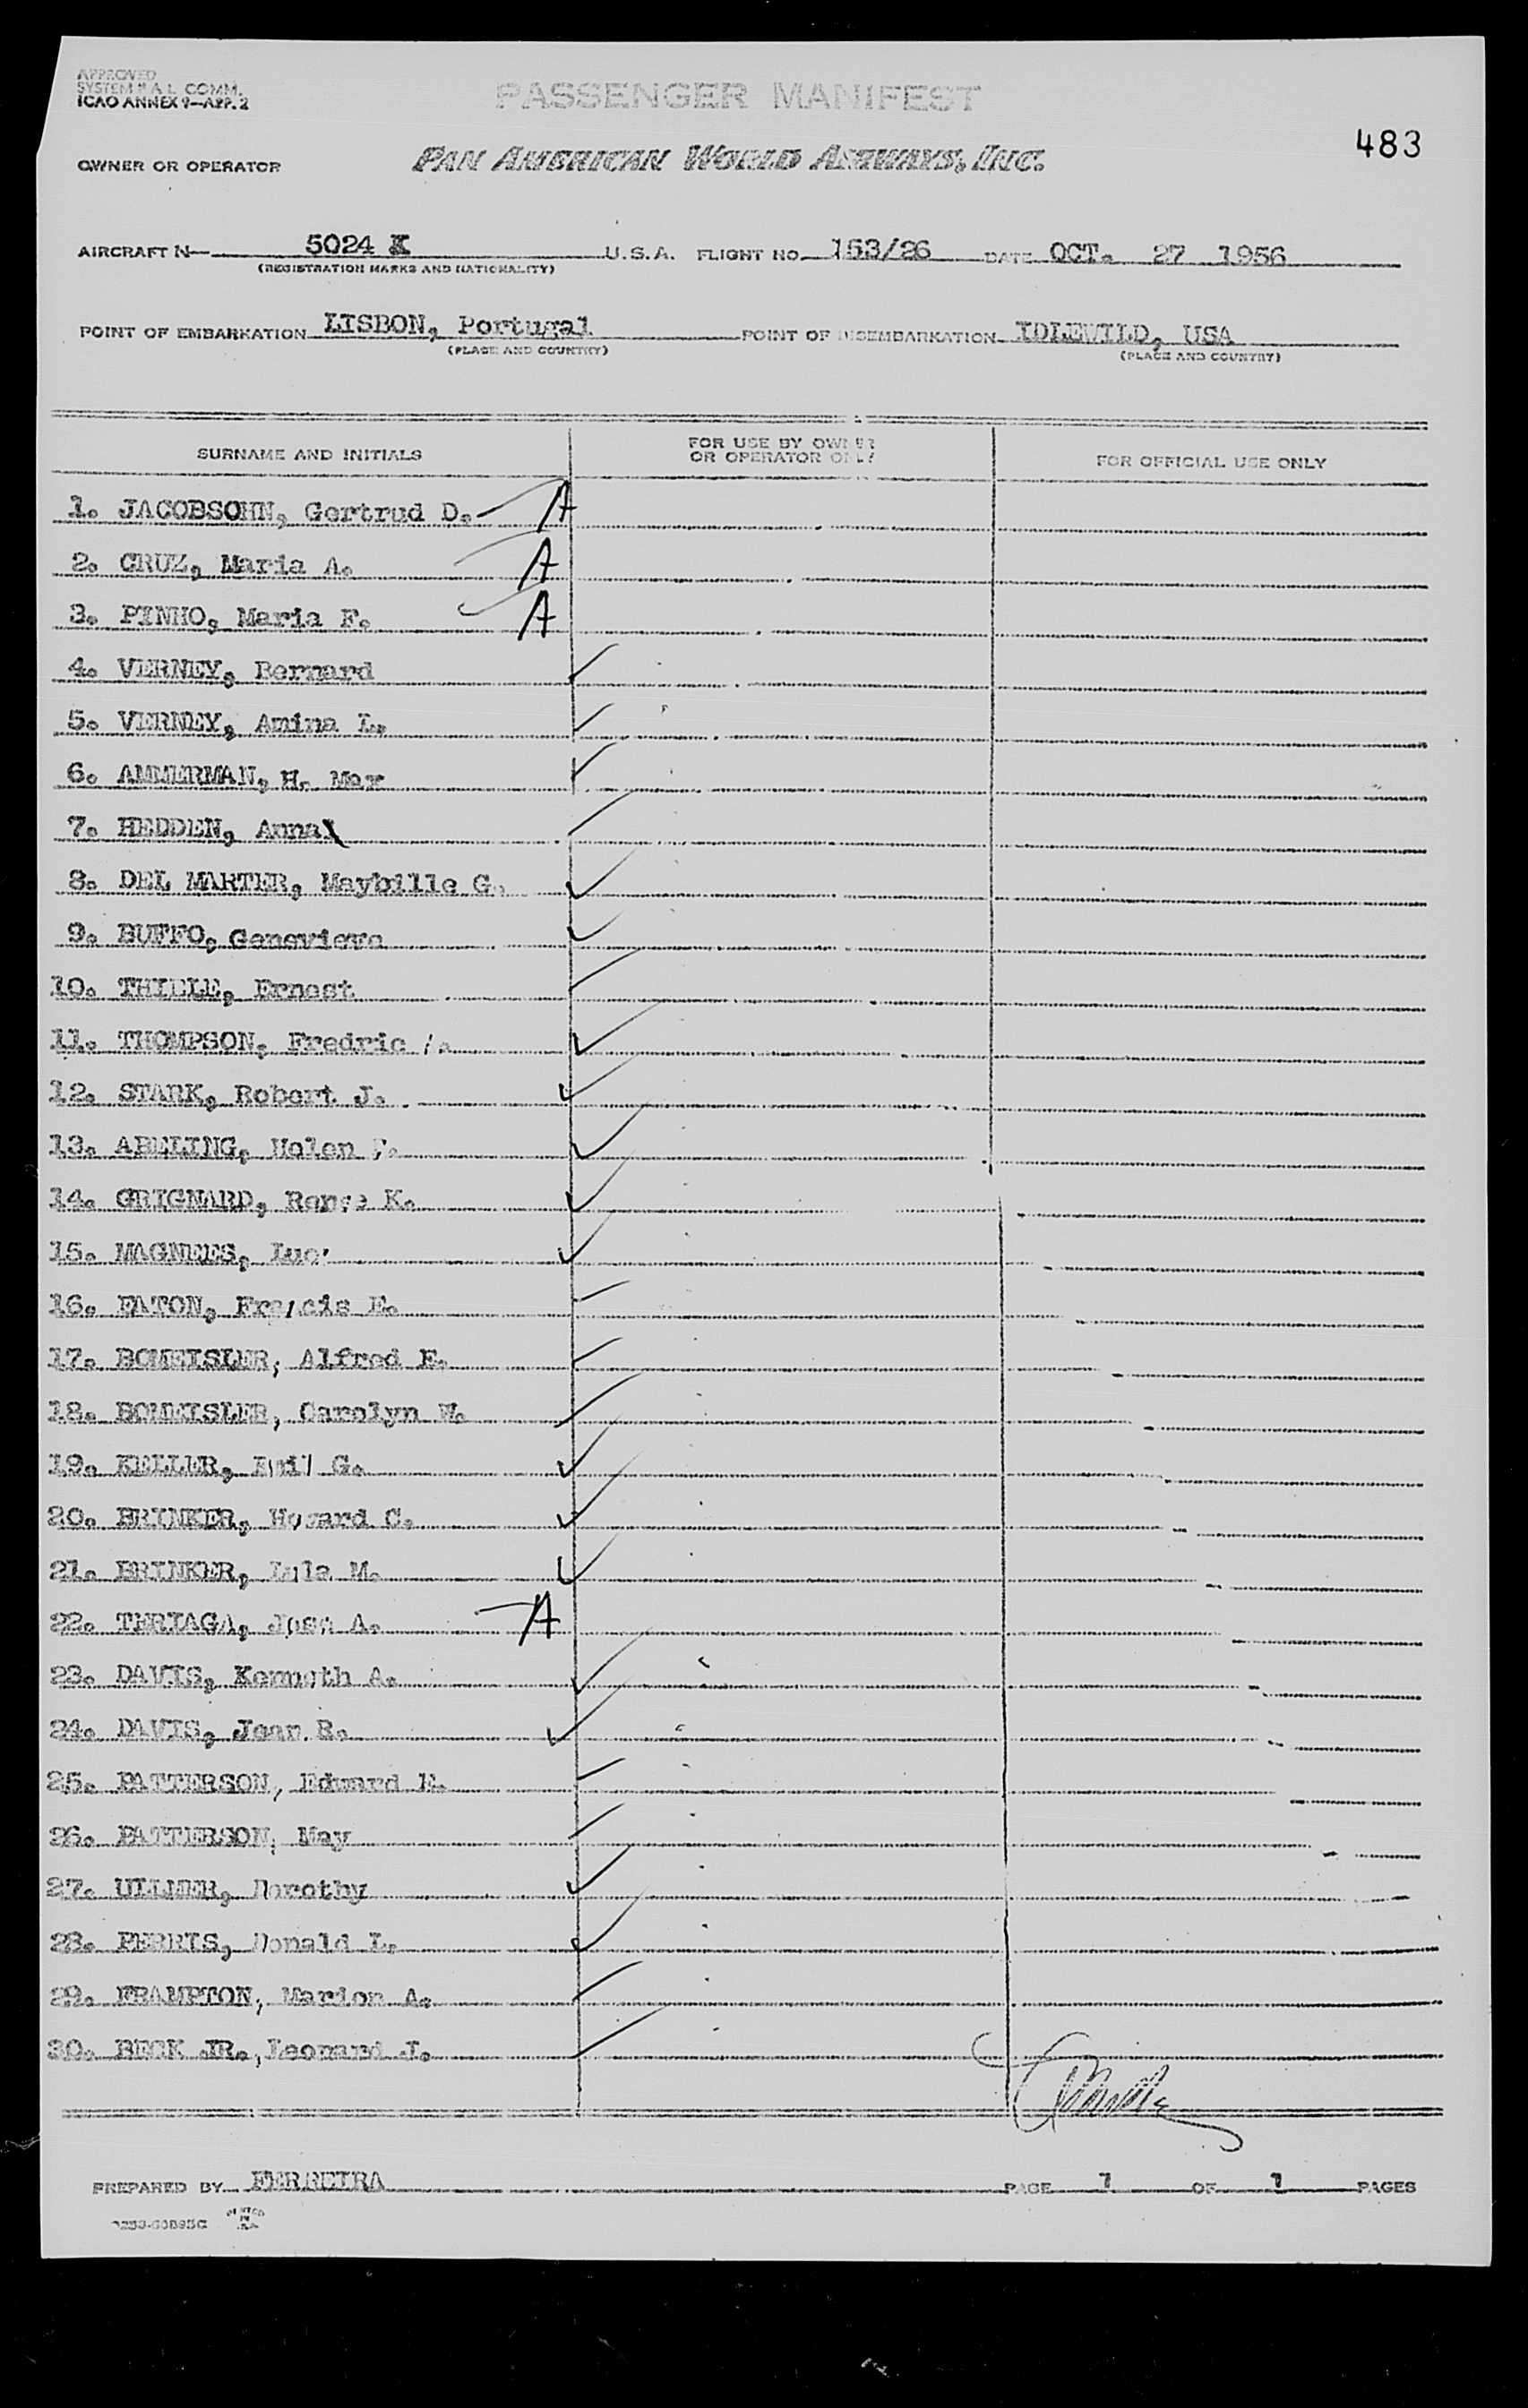 APPROVED
SYSTEM P.A.L. COMM.
ICAO ANNEX 9—APP. 2
PASSENGER MANIFEST
483
OWNER OR OPERATOR PAN AMERICAN WORLD AIRWAYS, INC.
AIRCRAFT N— 5024 K U.S.A. FLIGHT NO. 153/26 DATE OCT. 27 1956
(REGISTRATION MARKS AND NATIONALITY)
POINT OF EMBARKATION LISBON, Portugal POINT OF DISEMBARKATION IDLEWILD, USA
(PLACE AND COUNTRY) (PLACE AND COUNTRY)
SURNAME AND INITIALS FOR USE BY OWNER OR OPERATOR ONLY FOR OFFICIAL USE ONLY
1. JACOBSOHN, Gertrud D. A
2. CRUZ, Maria A. A
3. PINHO, Maria F. A
4. VERNEY, Bernard
5. VERNEY, Amina L.
6. AMMERMAN, H. Max
7. HEDDEN, Anna
8. DEL MARTER, Maybille G.
9. BUFFO, Genevieve
10. THIELE, Ernest
11. THOMPSON, Fredric
12. STARK, Robert J.
13. ABELING, Helen F.
14. GRIGNARD, Renee K.
15. MAGNEES, Luc
16. EATON, Francis E.
17. BOMEISLER, Alfred E.
18. BOMEISLER, Carolyn W.
19. KELLER, Emil G.
20. BRINKER, Howard C.
21. BRINKER, Lula M.
22. TERIAGA, Jose A. A
23. DAVIS, Kenneth A.
24. DAVIS, Jean R.
25. PATTERSON, Edward E.
26. PATTERSON, May
27. ULLMER, Dorothy
28. FERRIS, Donald L.
29. FRAMPTON, Marion A.
30. BECK JR., Leonard J.
PREPARED BY FERREIRA PAGE 1 OF 1 PAGES